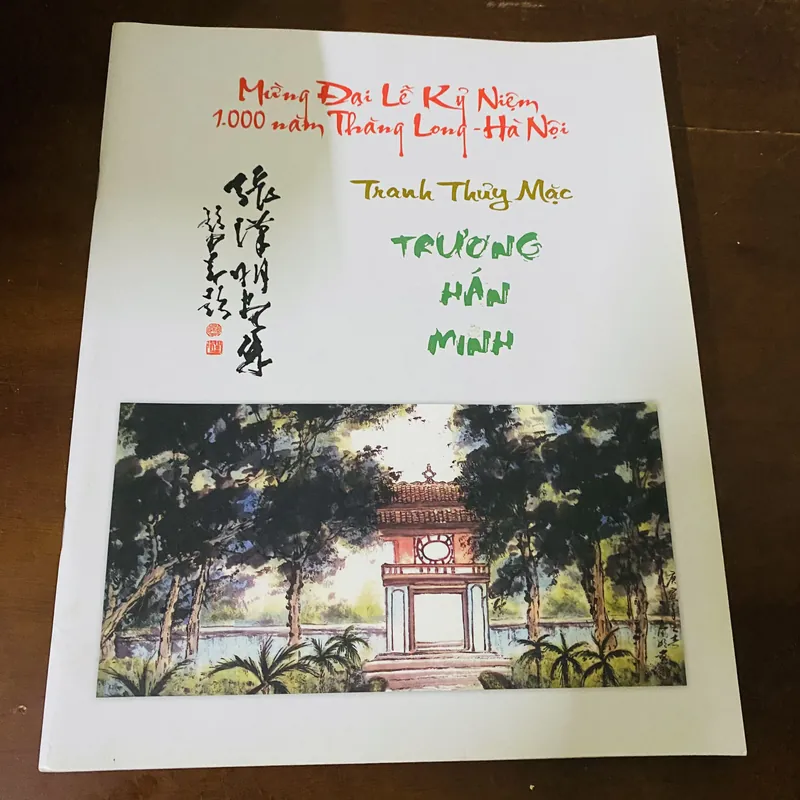 Mừng Đại Lễ Kỷ Niệm
1.000 năm Thăng Long - Hà Nội
Tranh Thủy Mặc
TRƯƠNG
HÁN
MINH
張漢明畫集